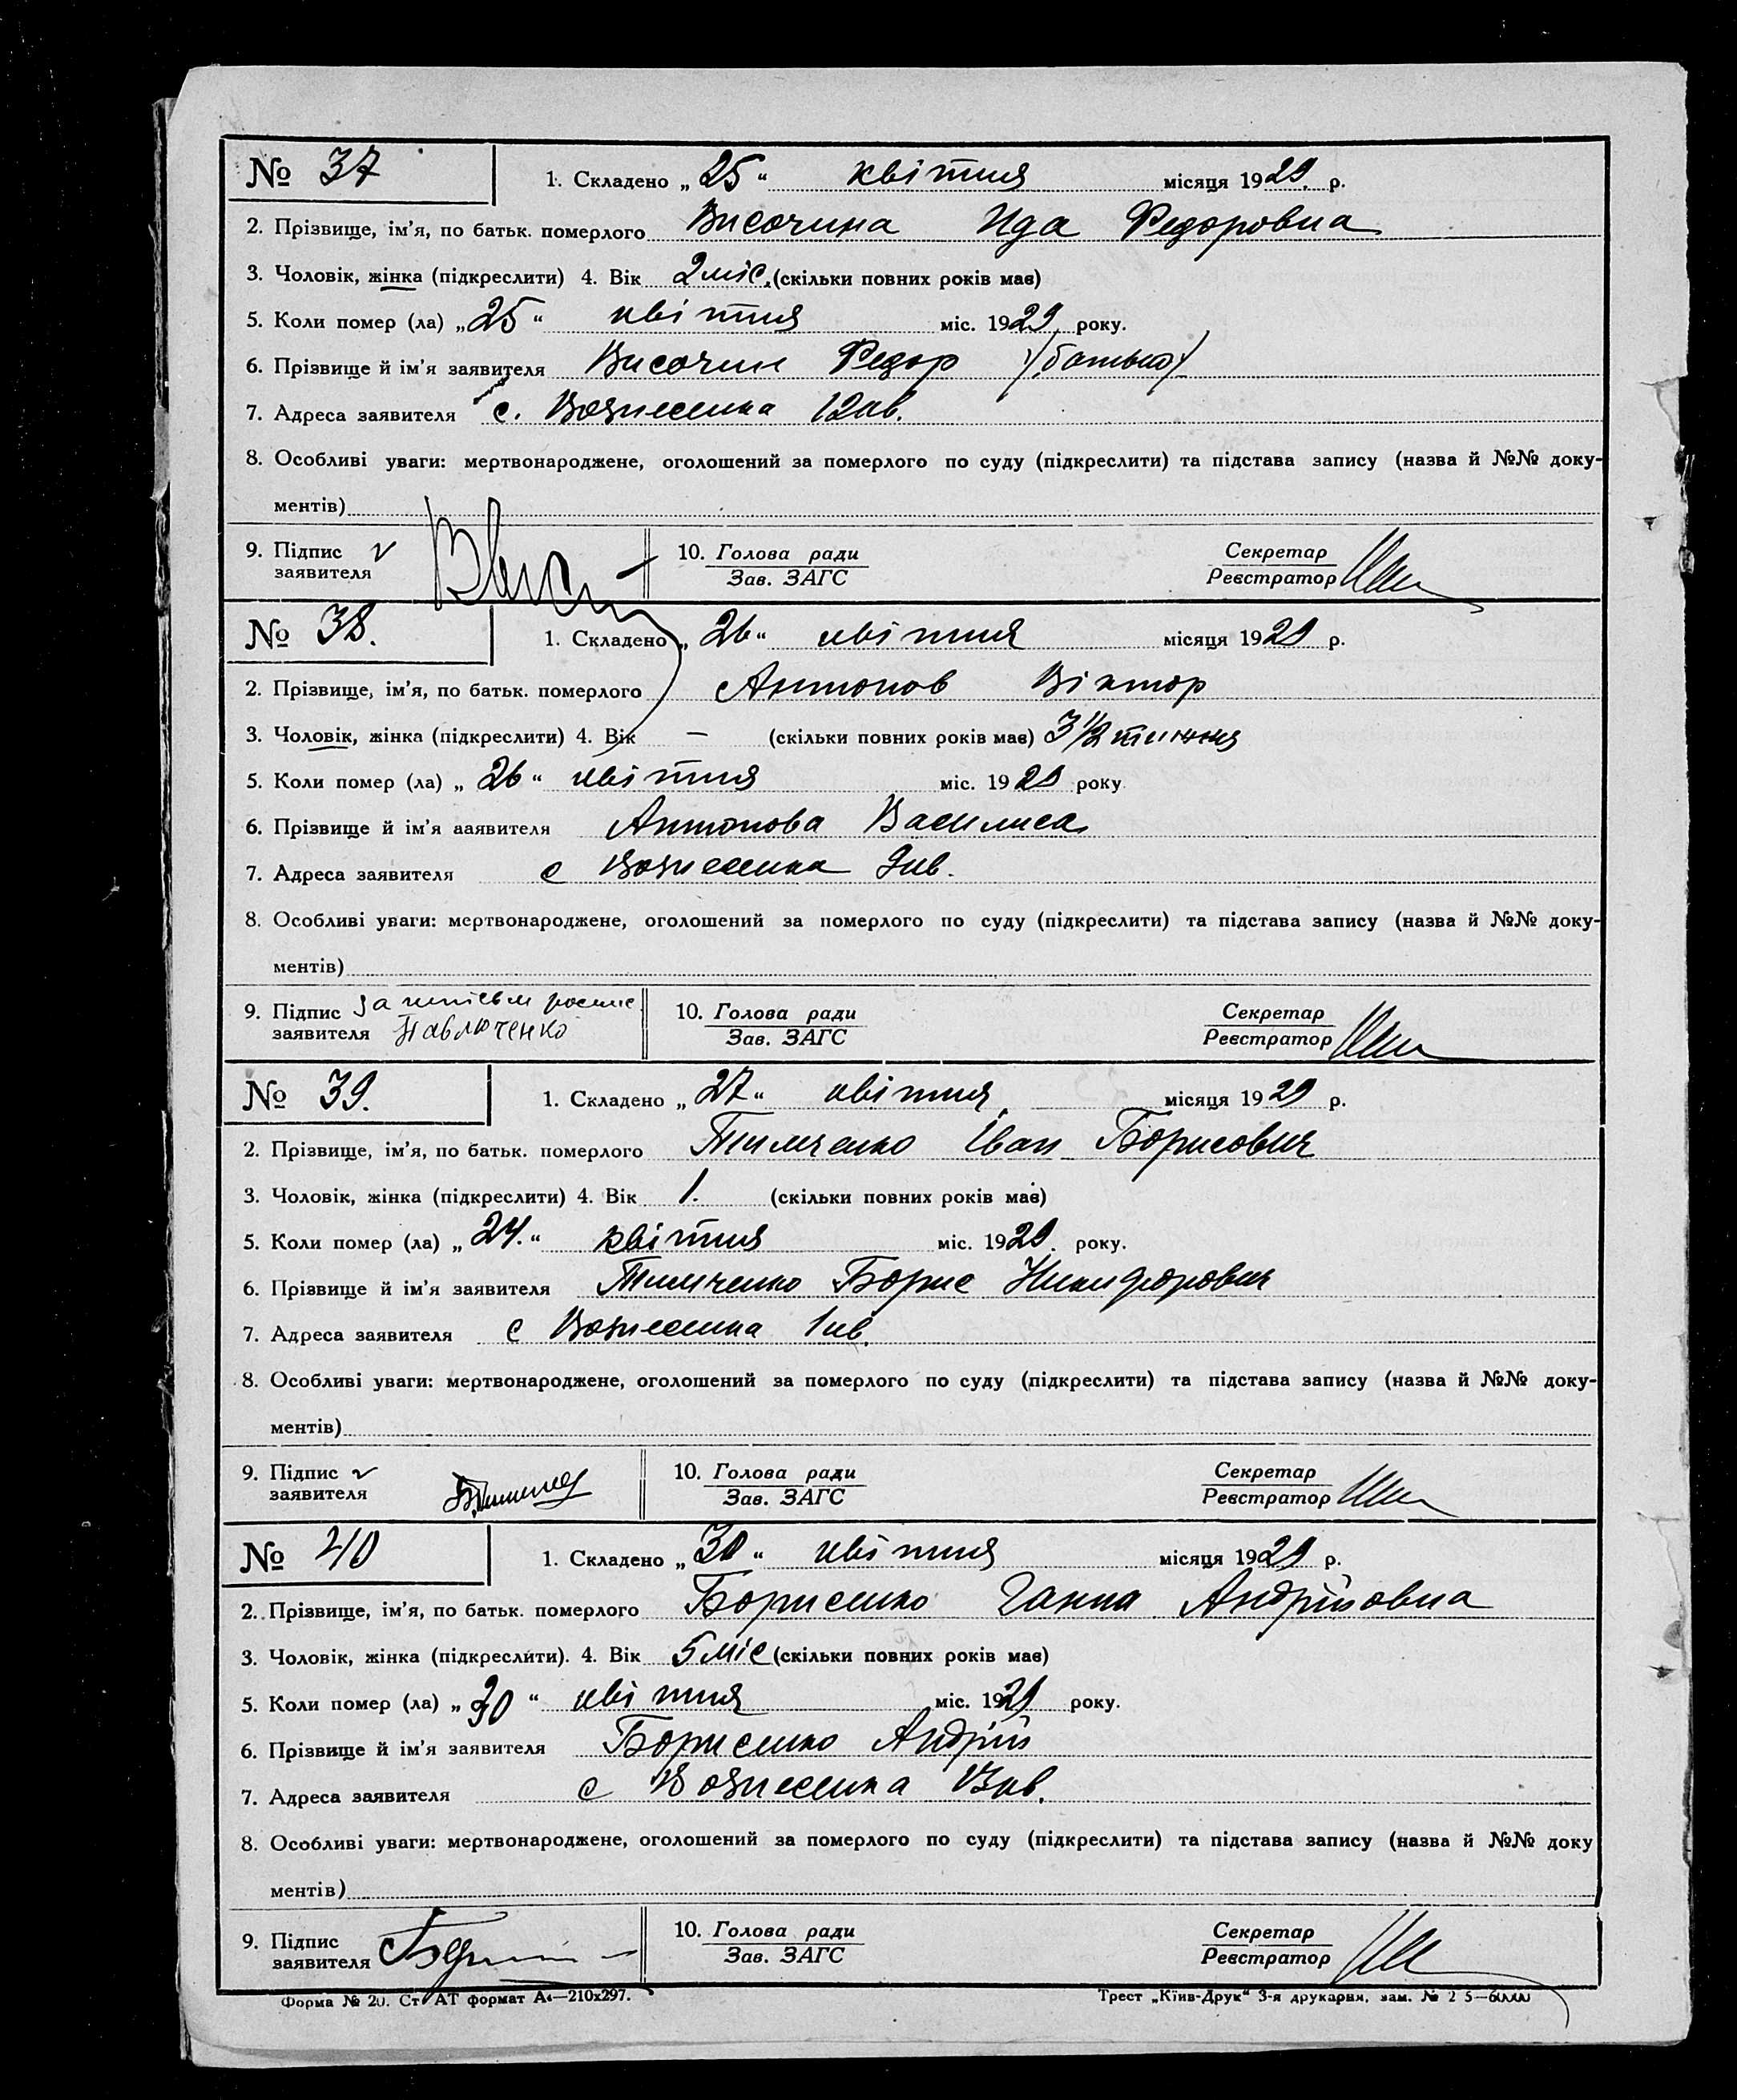 № 37
1. Складено „25“ квітня місяця 1929 р.
2. Прізвище, ім’я, по батьк. померлого Височина Ида Федоровна
3. Чоловік, жінка (підкреслити) 4. Вік 2 міс. (скільки повних років має)
5. Коли помер (ла) „25“ квітня міс. 1929 року.
6. Прізвище й ім’я заявителя Височин Федор /батько/
7. Адреса заявителя с. Вознесенка 12 кв.
8. Особливі уваги: мертвонароджене, оголошений за померлого по суду (підкреслити) та підстава запису (назва й №№ доку-
ментів)
9. Підпис заявителя
10. Голова ради Зав. ЗАГС
Секретар Реєстратор
№ 38.
1. Складено „26“ квітня місяця 1929 р.
2. Прізвище, ім’я, по батьк. померлого Антонов Віктор
3. Чоловік, жінка (підкреслити) 4. Вік – (скільки повних років має) 3 1/2 тижня
5. Коли помер (ла) „26“ квітня міс. 1929 року
6. Прізвище й ім’я ааявителя Антонова Василиса
7. Адреса заявителя с Вознесенка кв.
8. Особливі уваги: мертвонароджене, оголошений за померлого по суду (підкреслити) та підстава запису (назва й №№ доку-
ментів)
9. Підпис заявителя За Павлюченко
10. Голова ради Зав. ЗАГС
Секретар Реєстратор
№ 39.
1. Складено „27“ квітня місяця 1929 р.
2. Прізвище, ім’я, по батьк. померлого Тимченко Іван Борисович
3. Чоловік, жінка (підкреслити) 4. Вік 1. (скільки повних років має)
5. Коли помер (ла) „24.“ квітня міс. 1929. року.
6. Прізвище й ім’я заявителя Тимченко Борис Никифорович
7. Адреса заявителя с Вознесенка 1 кв.
8. Особливі уваги: мертвонароджене, оголошений за померлого по суду (підкреслити) та підстава запису (назва й №№ доку-
ментів)
9. Підпис заявителя
10. Голова ради Зав. ЗАГС
Секретар Реєстратор
№ 40
1. Складено „30“ квітня місяця 1929 р.
2. Прізвище, ім’я, по батьк. померлого Борисенко Ганна Андрійовна
3. Чоловік, жінка (підкреслити). 4. Вік 5 міс (скільки повних років має)
5. Коли помер (ла) „30“ квітня міс. 1929 року.
6. Прізвище й ім’я заявителя Борисенко Андрій
7. Адреса заявителя с Вознесенка 13 кв.
8. Особливі уваги: мертвонароджене, оголошений за померлого по суду (підкреслити) та підстава запису (назва й №№ доку
ментів)
9. Підпис заявителя
10. Голова ради Зав. ЗАГС
Секретар Реєстратор
Форма № 20. Ст АТ формат А4—210х297.
Трест „Київ-Друк“ 3-я друкарня, зам. №